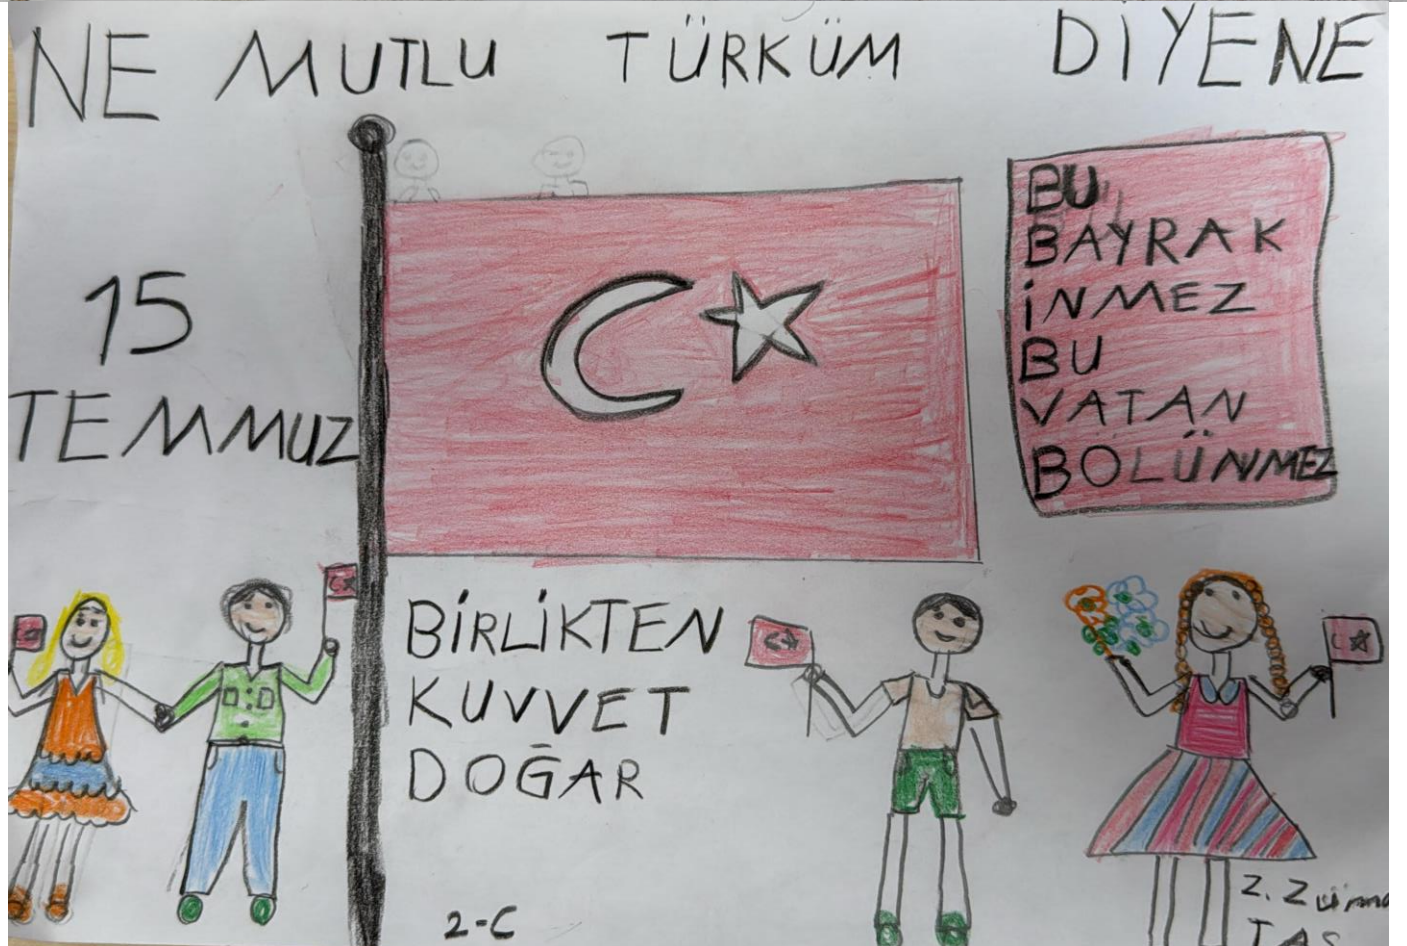 NE MUTLU TÜRKÜM DİYENE
15
TEMMUZ
BU
BAYRAK
İNMEZ
BU
VATAN
BÖLÜNMEZ
BİRLİKTEN
KUVVET
DOĞAR
2-C
Z.